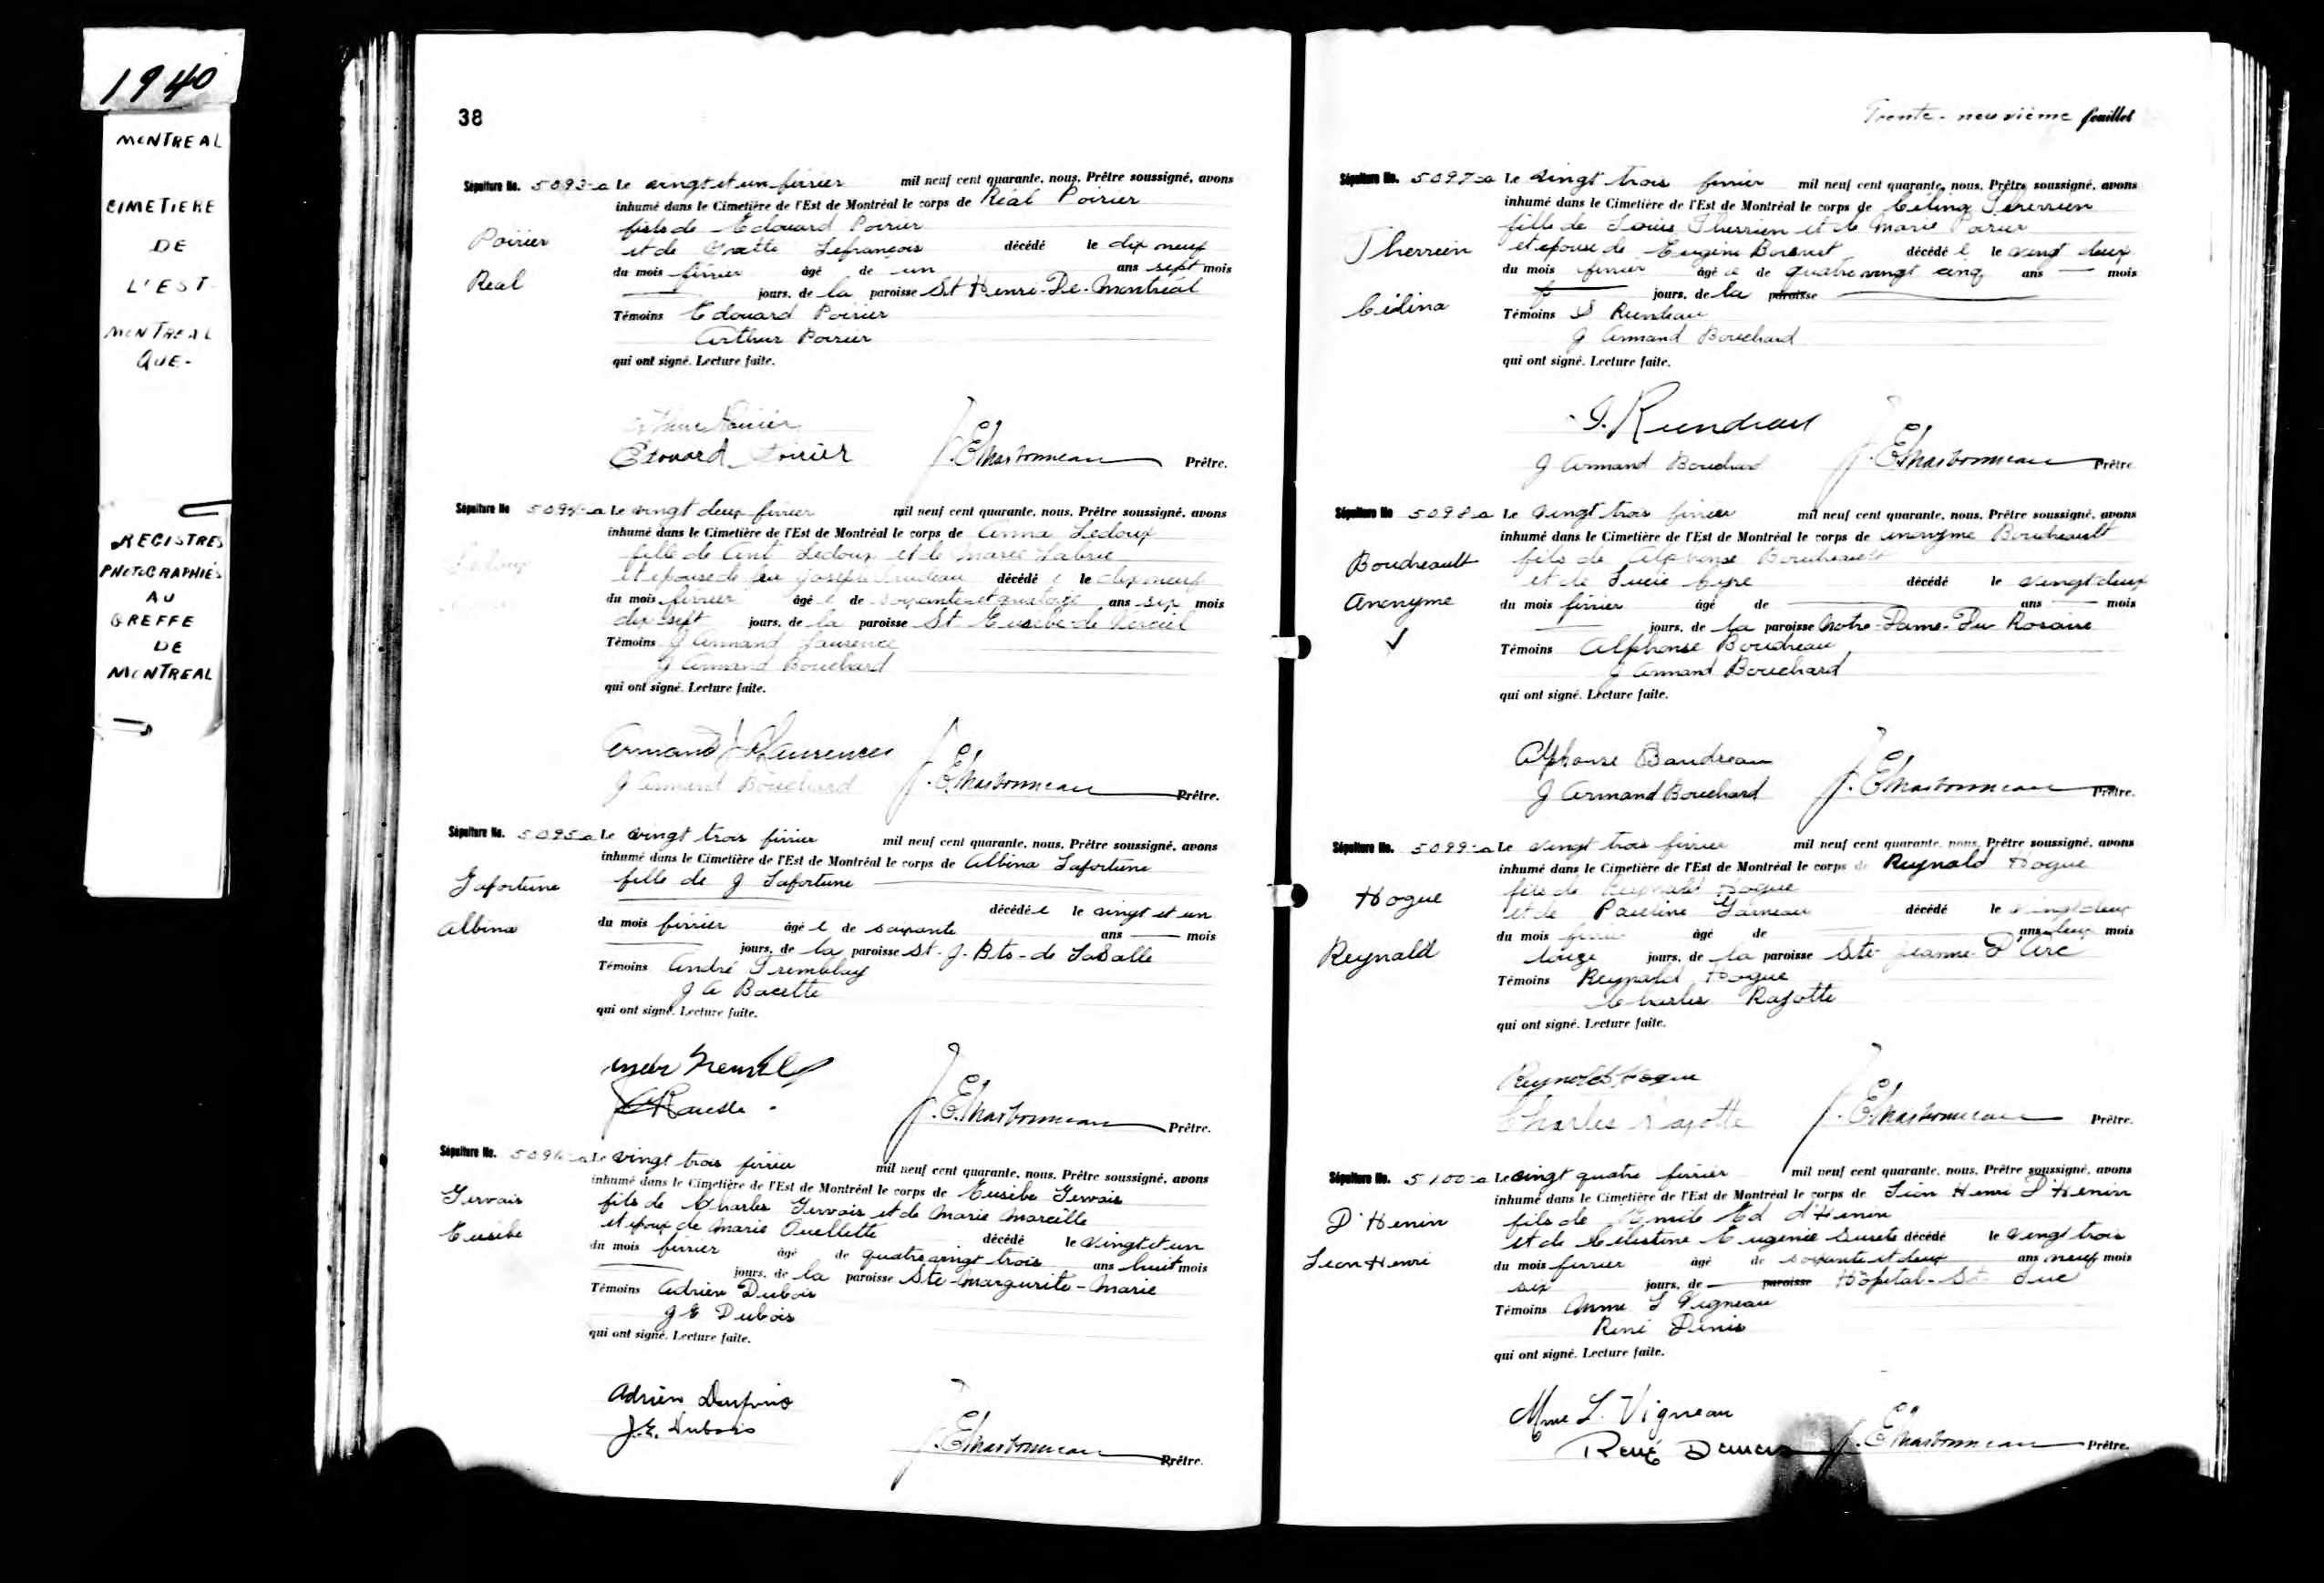 1940
MONTREAL
CIMETIERE
DE
L'EST
MONTREAL
QUE-
REGISTRES
PHOTOGRAPHIÉS
AU
GREFFE
DE
MONTREAL
38
Sépulture No. 5093-a Le vingt et un février mil neuf cent quarante, nous, Prêtre soussigné, avons
inhumé dans le Cimetière de l'Est de Montréal le corps de Réal Poirier
fils de Edouard Poirier
Poirier
et de Lefrançois décédé le dix neuf
du mois février âgé de un ans sept mois
Réal
jours, de la paroisse St Henri-De-Montréal
Témoins Edouard Poirier
Arthur Poirier
qui ont signé. Lecture faite.
Poirier
Edouard Poirier J. E. Charbonneau Prêtre.
Sépulture No 5094-a Le vingt deux février mil neuf cent quarante, nous, Prêtre soussigné, avons
inhumé dans le Cimetière de l'Est de Montréal le corps de Anna Ledoux
fille de Ant Ledoux et de Marie Labrie
Ledoux
et épouse de feu Joseph décédé e le dix neuf
du mois février âgé e de soixante et quatorze ans six mois
dix sept jours, de la paroisse St Eusebe-de Verceil
Témoins J Armand Laurence
J Armand Bouchard
qui ont signé. Lecture faite.
Armand Laurence
J Armand Bouchard J. E. Charbonneau Prêtre.
Sépulture No. 5095-a Le vingt trois février mil neuf cent quarante, nous, Prêtre soussigné, avons
inhumé dans le Cimetière de l'Est de Montréal le corps de Albina Lafortune
Lafortune
fille de J Lafortune
décédé e le vingt et un
Albina
du mois février âgé e de soixante ans mois
jours, de la paroisse St-J-Bts-de LaSalle
Témoins André Tremblay
J A
qui ont signé. Lecture faite.
J. E. Charbonneau Prêtre.
Sépulture No. 5096-a Le vingt trois février mil neuf cent quarante, nous, Prêtre soussigné, avons
inhumé dans le Cimetière de l'Est de Montréal le corps de Eusèbe Gervais
Gervais
fils de Charles Gervais et de Marie Marcille
Eusèbe
et époux de Marie Ouellette décédé le vingt et un
du mois février âgé de quatre vingt trois ans huit mois
jours, de la paroisse Ste-Margurite-Marie
Témoins Adrien Dubois
J E Dubois
qui ont signé. Lecture faite.
Adrien
J. E. Dubois
J. E. Charbonneau Prêtre.
Trente-neuvième feuillet
Sépulture No. 5097-a Le vingt trois février mil neuf cent quarante, nous, Prêtre soussigné, avons
inhumé dans le Cimetière de l'Est de Montréal le corps de Célina Therrien
fille de Louis Therrien et de Marie Poirier
Therrien
et épouse de Eugène décédé e le vingt deux
du mois février âgé e de quatre vingt cinq ans mois
Célina
jours, de la paroisse
Témoins Rundeau
J Armand Bouchard
qui ont signé. Lecture faite.
Rundeau
J Armand Bouchard J. E. Charbonneau Prêtre
Sépulture No 5098-a Le vingt trois février mil neuf cent quarante, nous, Prêtre soussigné, avons
inhumé dans le Cimetière de l'Est de Montréal le corps de Anonyme Boudreault
Boudreault
fils de Alphonse Boudreault
et de Lucie décédé le vingt deux
Anonyme
du mois février âgé de ans mois
jours, de la paroisse Notre-Dame-Du Rosaire
Témoins Alphonse Boudreau
J Armand Bouchard
qui ont signé. Lecture faite.
Alphonse Baudreau
J Armand Bouchard J. E. Charbonneau Prêtre.
Sépulture No. 5099-a Le vingt trois février mil neuf cent quarante, nous, Prêtre soussigné, avons
inhumé dans le Cimetière de l'Est de Montréal le corps de Reynald Hogue
Hogue
fils de Reynald Hogue
et de Pauline Garneau décédé le vingt deux
du mois février âgé de ans deux mois
Reynald
jours, de la paroisse Ste Jeanne-D'Arc
Témoins Reynald Hogue
Charles Rajotte
qui ont signé. Lecture faite.
Reynald Hogue
Charles Rajotte J. E. Charbonneau Prêtre.
Sépulture No. 5100-a Le vingt quatre février mil neuf cent quarante, nous, Prêtre soussigné, avons
inhumé dans le Cimetière de l'Est de Montréal le corps de Léon Henri D'Henin
D'Henin
fils de Emile Ed d'Henin
et de Celestine Eugenie décédé le vingt trois
Leon Henri
du mois février âgé de soixante et deux ans neuf mois
six jours, de paroisse Hôpital-St Luc
Témoins Mme L Vigneau
René Denis
qui ont signé. Lecture faite.
Mme L. Vigneau
René J. E. Charbonneau Prêtre.